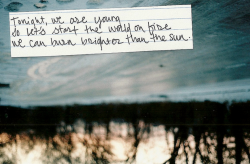 Tonight, we are young
So let's start the world on fire
we can burn brighter than the sun.